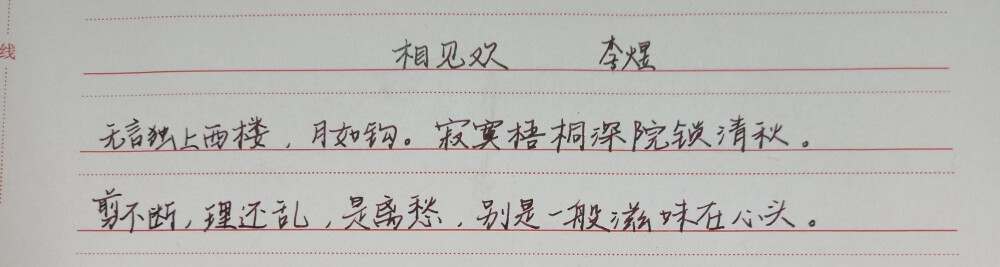 线
相见欢 李煜
无言独上西楼，月如钩。寂寞梧桐深院锁清秋。
剪不断，理还乱，是离愁，别是一般滋味在心头。